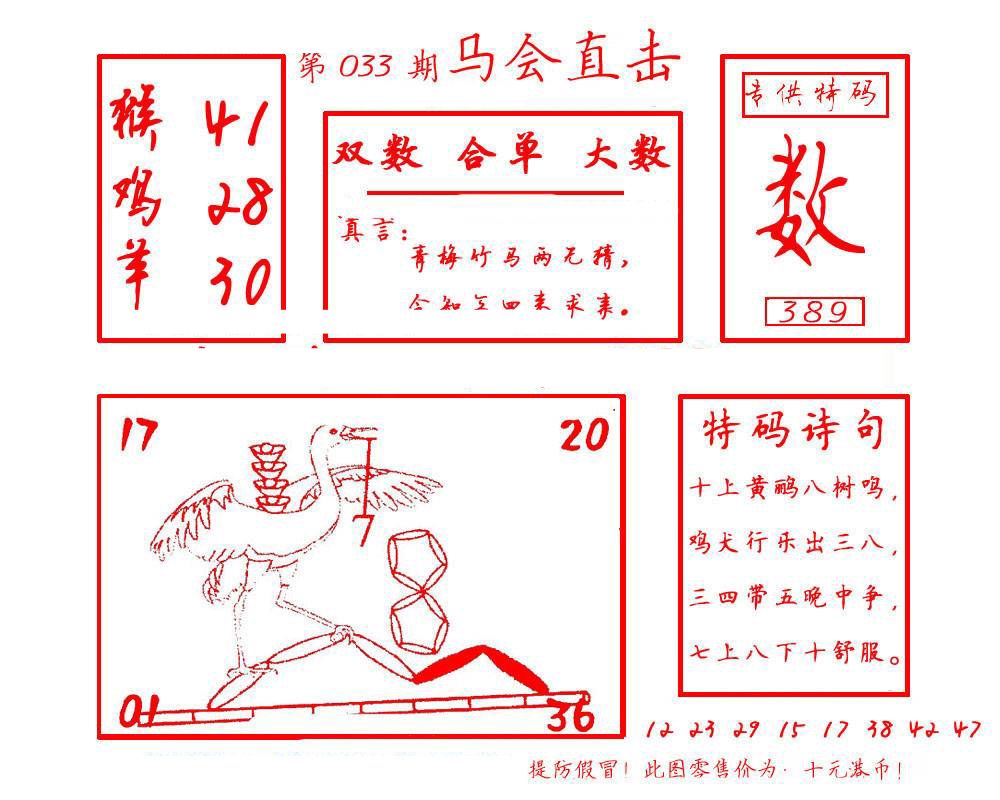 第 033 期 马会直击
猴 41
鸡 28
羊 30
双数 合单 大数
真言：
青梅竹马两无猜，
今知三四来求亲。
专供特码
数
389
17
20
7
01
36
特码诗句
十上黄鹂八树鸣，
鸡犬行乐出三八，
三四带五晚中争，
七上八下十舒服。
12 23 29 15 17 38 42 47
提防假冒！此图零售价为：十元港币！